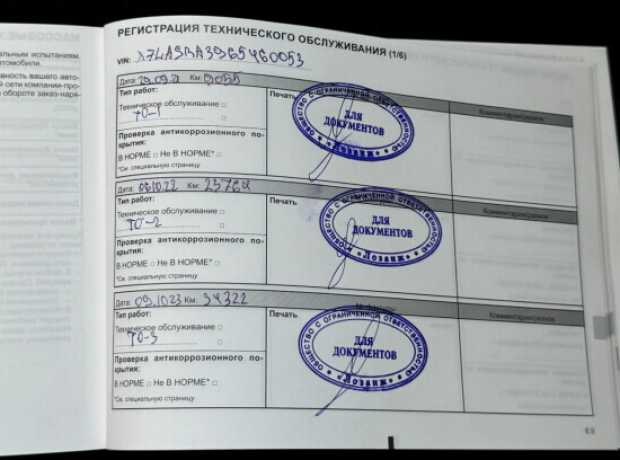 МАССОВЫЕ
альным испытаниям,
втомобили.
вность вашего авто-
й сети компании-про-
обороте заказ-наря-
РЕГИСТРАЦИЯ ТЕХНИЧЕСКОГО ОБСЛУЖИВАНИЯ (1/6)
VIN: X7LASRA3965460053
Дата: 29.09.21 Км: 9055
Тип работ:
Печать
Комментарии/резюме
Техническое обслуживание □
ТО-1
ОБЩЕСТВО С ОГРАНИЧЕННОЙ ОТВЕТСТВЕННОСТЬЮ
ДЛЯ
ДОКУМЕНТОВ
Проверка антикоррозионного по-
крытия:
В НОРМЕ □ Не В НОРМЕ* □
*См. специальную страницу
Дата: 06.10.22 Км: 23784
Тип работ:
Печать
Комментарии/резюме
Техническое обслуживание □
ТО-2
ОБЩЕСТВО С ОГРАНИЧЕННОЙ ОТВЕТСТВЕННОСТЬЮ
ДЛЯ
ДОКУМЕНТОВ
Проверка антикоррозионного по-
крытия:
В НОРМЕ □ Не В НОРМЕ* □
*См. специальную страницу
Дата: 09.10.23 Км: 34322
Тип работ:
Печать
Комментарии/резюме
Техническое обслуживание □
ТО-3
ОБЩЕСТВО С ОГРАНИЧЕННОЙ ОТВЕТСТВЕННОСТЬЮ
ДЛЯ
ДОКУМЕНТОВ
Проверка антикоррозионного по-
крытия:
В НОРМЕ □ Не В НОРМЕ* □
*См. специальную страницу